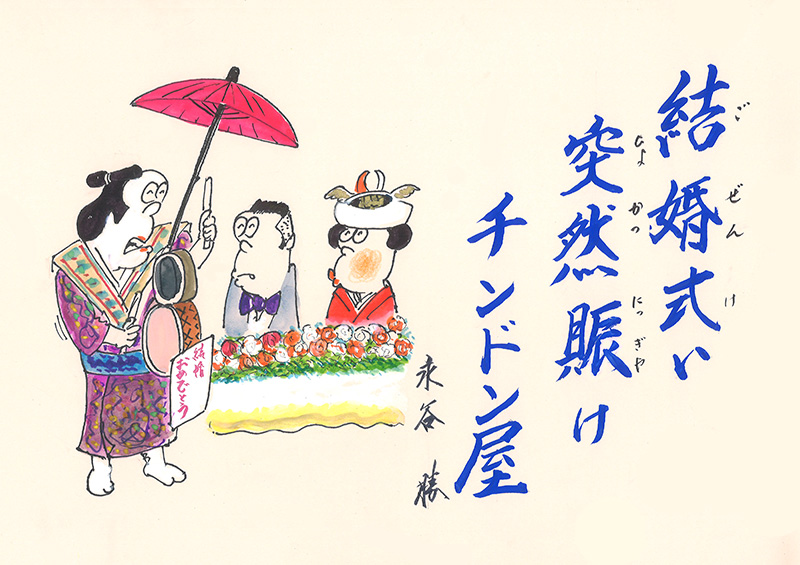 ごぜんけ
結婚式い
ひょかっ にっぎゃ
突然賑け
チンドン屋
永谷 勝
結婚
おめでとう